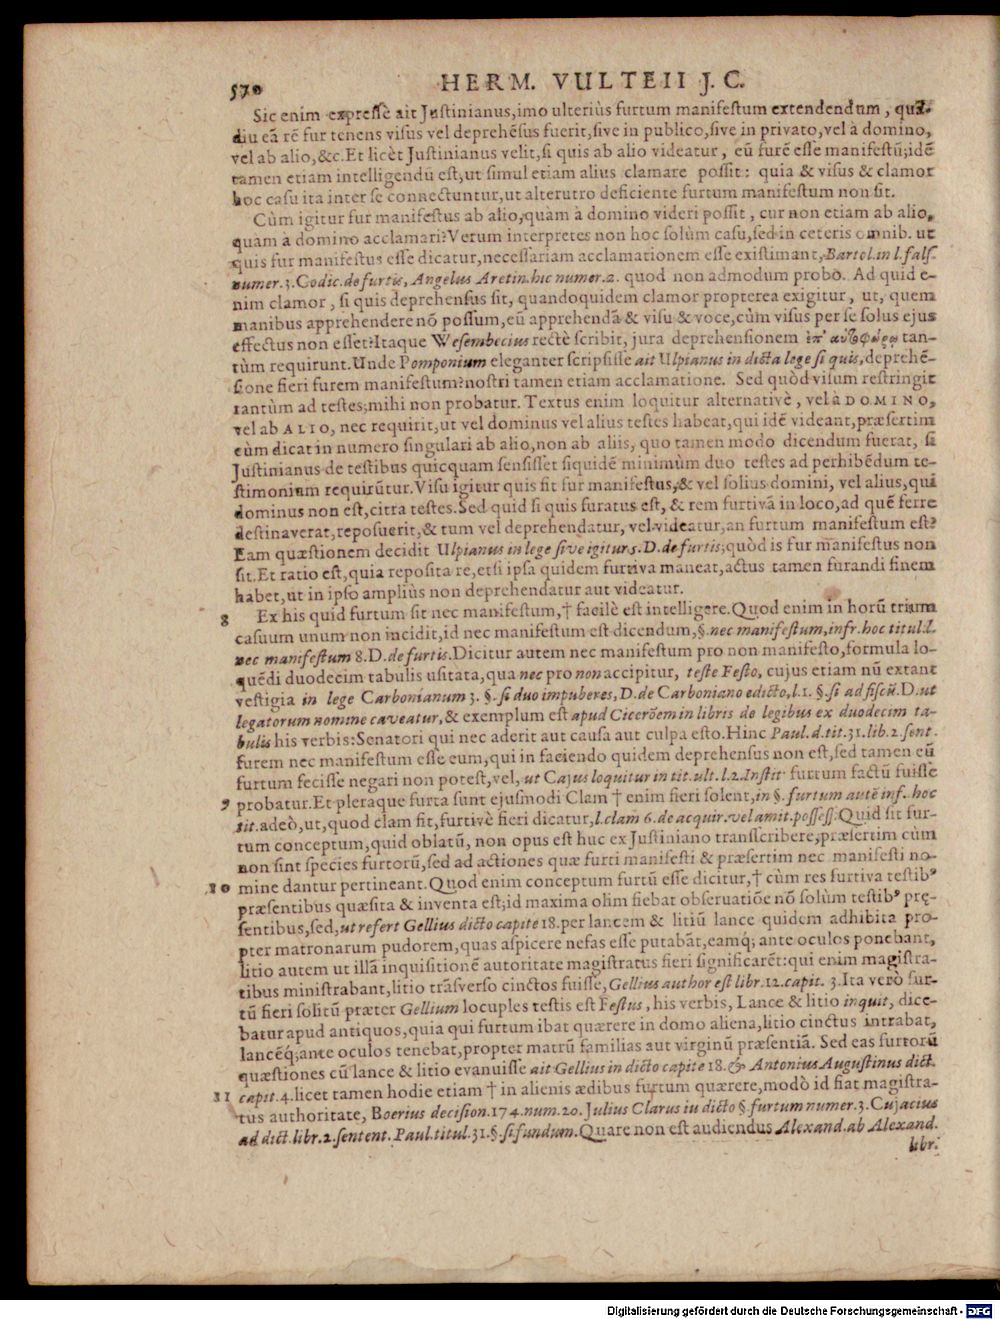 570 HERM. VULTEII J. C.
Sic enim expressè ait Justinianus, imo ulteriùs furtum manifestum extendendum, quā-
diu eā rē fur tenens visus vel deprehēsus fuerit, sive in publico, sive in privato, vel à domino,
vel ab alio, &c. Et licèt Justinianus velit, si quis ab alio videatur, eū furē esse manifestū; idē
tamen etiam intelligendū est, ut simul etiam alius clamare possit: quia & visus & clamor
hoc casu ita inter se connectuntur, ut alterutro deficiente furtum manifestum non sit.
Cùm igitur fur manifestus ab alio, quàm à domino videri possit, cur non etiam ab alio,
quàm à domino acclamari? Verum interpretes non hoc solùm casu, sed in ceteris omnib. ut
quis fur manifestus esse dicatur, necessariam acclamationem esse existimant, Bartol. in l. fals.
numer. 3. Codic. de furtis, Angelus Aretin. hic numer. 2. quod non admodum probo. Ad quid e-
nim clamor, si quis deprehensus sit, quandoquidem clamor propterea exigitur, ut, quem
manibus apprehendere nō possum, eū apprehendā & visu & voce, cùm visus per se solus ejus
effectus non esset? Itaque Wesembecius rectè scribit, jura deprehensionem ἐπ' αὐτοφώρῳ tan-
tùm requirunt. Unde Pomponium eleganter scripsisse ait Ulpianus in dicta lege si quis, deprehē-
sione fieri furem manifestum? nostri tamen etiam acclamatione. Sed quòd visum restringit
tantùm ad testes; mihi non probatur. Textus enim loquitur alternativè, vel à DOMINO,
vel ab ALIO, nec requirit, ut vel dominus vel alius testes habeat, qui idē videant, præsertim
cùm dicat in numero singulari ab alio, non ab aliis, quo tamen modo dicendum fuerat, si
Justinianus de testibus quicquam sensisset siquidē minimùm duo testes ad perhibēdum te-
stimonium requirūtur. Visu igitur quis fit fur manifestus, & vel solius domini, vel alius, qui
dominus non est, citra testes. Sed quid si quis furatus est, & rem furtivā in loco, ad quē ferre
destinaverat, reposuerit, & tum vel deprehendatur, vel videatur; an furtum manifestum est?
Eam quæstionem decidit Ulpianus in lege sive igitur 5. D. de furtis; quòd is fur manifestus non
sit. Et ratio est, quia reposita re, etsi ipsa quidem furtiva maneat, actus tamen furandi finem
habet, ut in ipso ampliùs non deprehendatur aut videatur.
8 Ex his quid furtum sit nec manifestum, † facilè est intelligere. Quod enim in horū trium
casuum unum non incidit, id nec manifestum est dicendum, §. nec manifestum, infr. hoc titul. l.
nec manifestum 8. D. de furtis. Dicitur autem nec manifestum pro non manifesto, formula lo-
quēdi duodecim tabulis usitata, qua nec pro non accipitur, teste Festo, cujus etiam nū extant
vestigia in lege Carbonianum 3. §. si duo impuberes, D. de Carboniano edicto, l. 1. §. si ad fiscū. D. ut
legatorum nomine caveatur, & exemplum est apud Cicerōem in libris de legibus ex duodecim ta-
bulis his verbis: Senatori qui nec aderit aut causa aut culpa esto. Hinc Paul. d. tit. 31. lib. 2. sent.
furem nec manifestum esse eum, qui in faciendo quidem deprehensus non est, sed tamen eū
furtum fecisse negari non potest, vel, ut Cajus loquitur in tit. ult. l. 2. Instit. furtum factū fuisse
9 probatur. Et pleraque furta sunt ejusmodi Clam † enim fieri solent, in §. furtum autē inf. hoc
tit. adeò, ut, quod clam fit, furtivè fieri dicatur, l. clam 6. de acquir. vel amit. possess. Quid sit fur-
tum conceptum, quid oblatū, non opus est huc ex Justiniano transscribere; præsertim cùm
non sint species furtorū, sed ad actiones quæ furti manifesti & præsertim nec manifesti no-
10 mine dantur pertineant. Quod enim conceptum furtū esse dicitur, † cùm res furtiva testib⁹
præsentibus quæsita & inventa est; id maxima olim fiebat observatiōe nō solùm testib⁹ prę-
sentibus, sed, ut refert Gellius dicto capite 18. per lancem & litiū lance quidem adhibita pro-
pter matronarum pudorem, quas aspicere nefas esse putabāt, eamq́; ante oculos ponebant,
litio autem ut illā inquisitionē autoritate magistratus fieri significarēt: qui enim magistra-
tibus ministrabant, litio trāsverso cinctos fuisse, Gellius author est libr. 12. capit. 3. Ita verò fur-
tū fieri solitū præter Gellium locuples testis est Festus, his verbis, Lance & litio inquit, dice-
batur apud antiquos, quia qui furtum ibat quærere in domo aliena, litio cinctus intrabat,
lancēq́; ante oculos tenebat, propter matrū familias aut virginū præsentiā. Sed eas furtorū
quæstiones cū lance & litio evanuisse ait Gellius in dicto capite 18. & Antonius Augustinus dict.
11 capit. 4. licet tamen hodie etiam † in alienis ædibus furtum quærere, modò id fiat magistra-
tus authoritate, Boerius decision. 174. num. 20. Julius Clarus in dicto §. furtum numer. 3. Cujacius
ad dict. libr. 2. sentent. Paul. titul. 31. §. si fundum. Quare non est audiendus Alexand. ab Alexand.
libr.
Digitalisierung gefördert durch die Deutsche Forschungsgemeinschaft - DFG